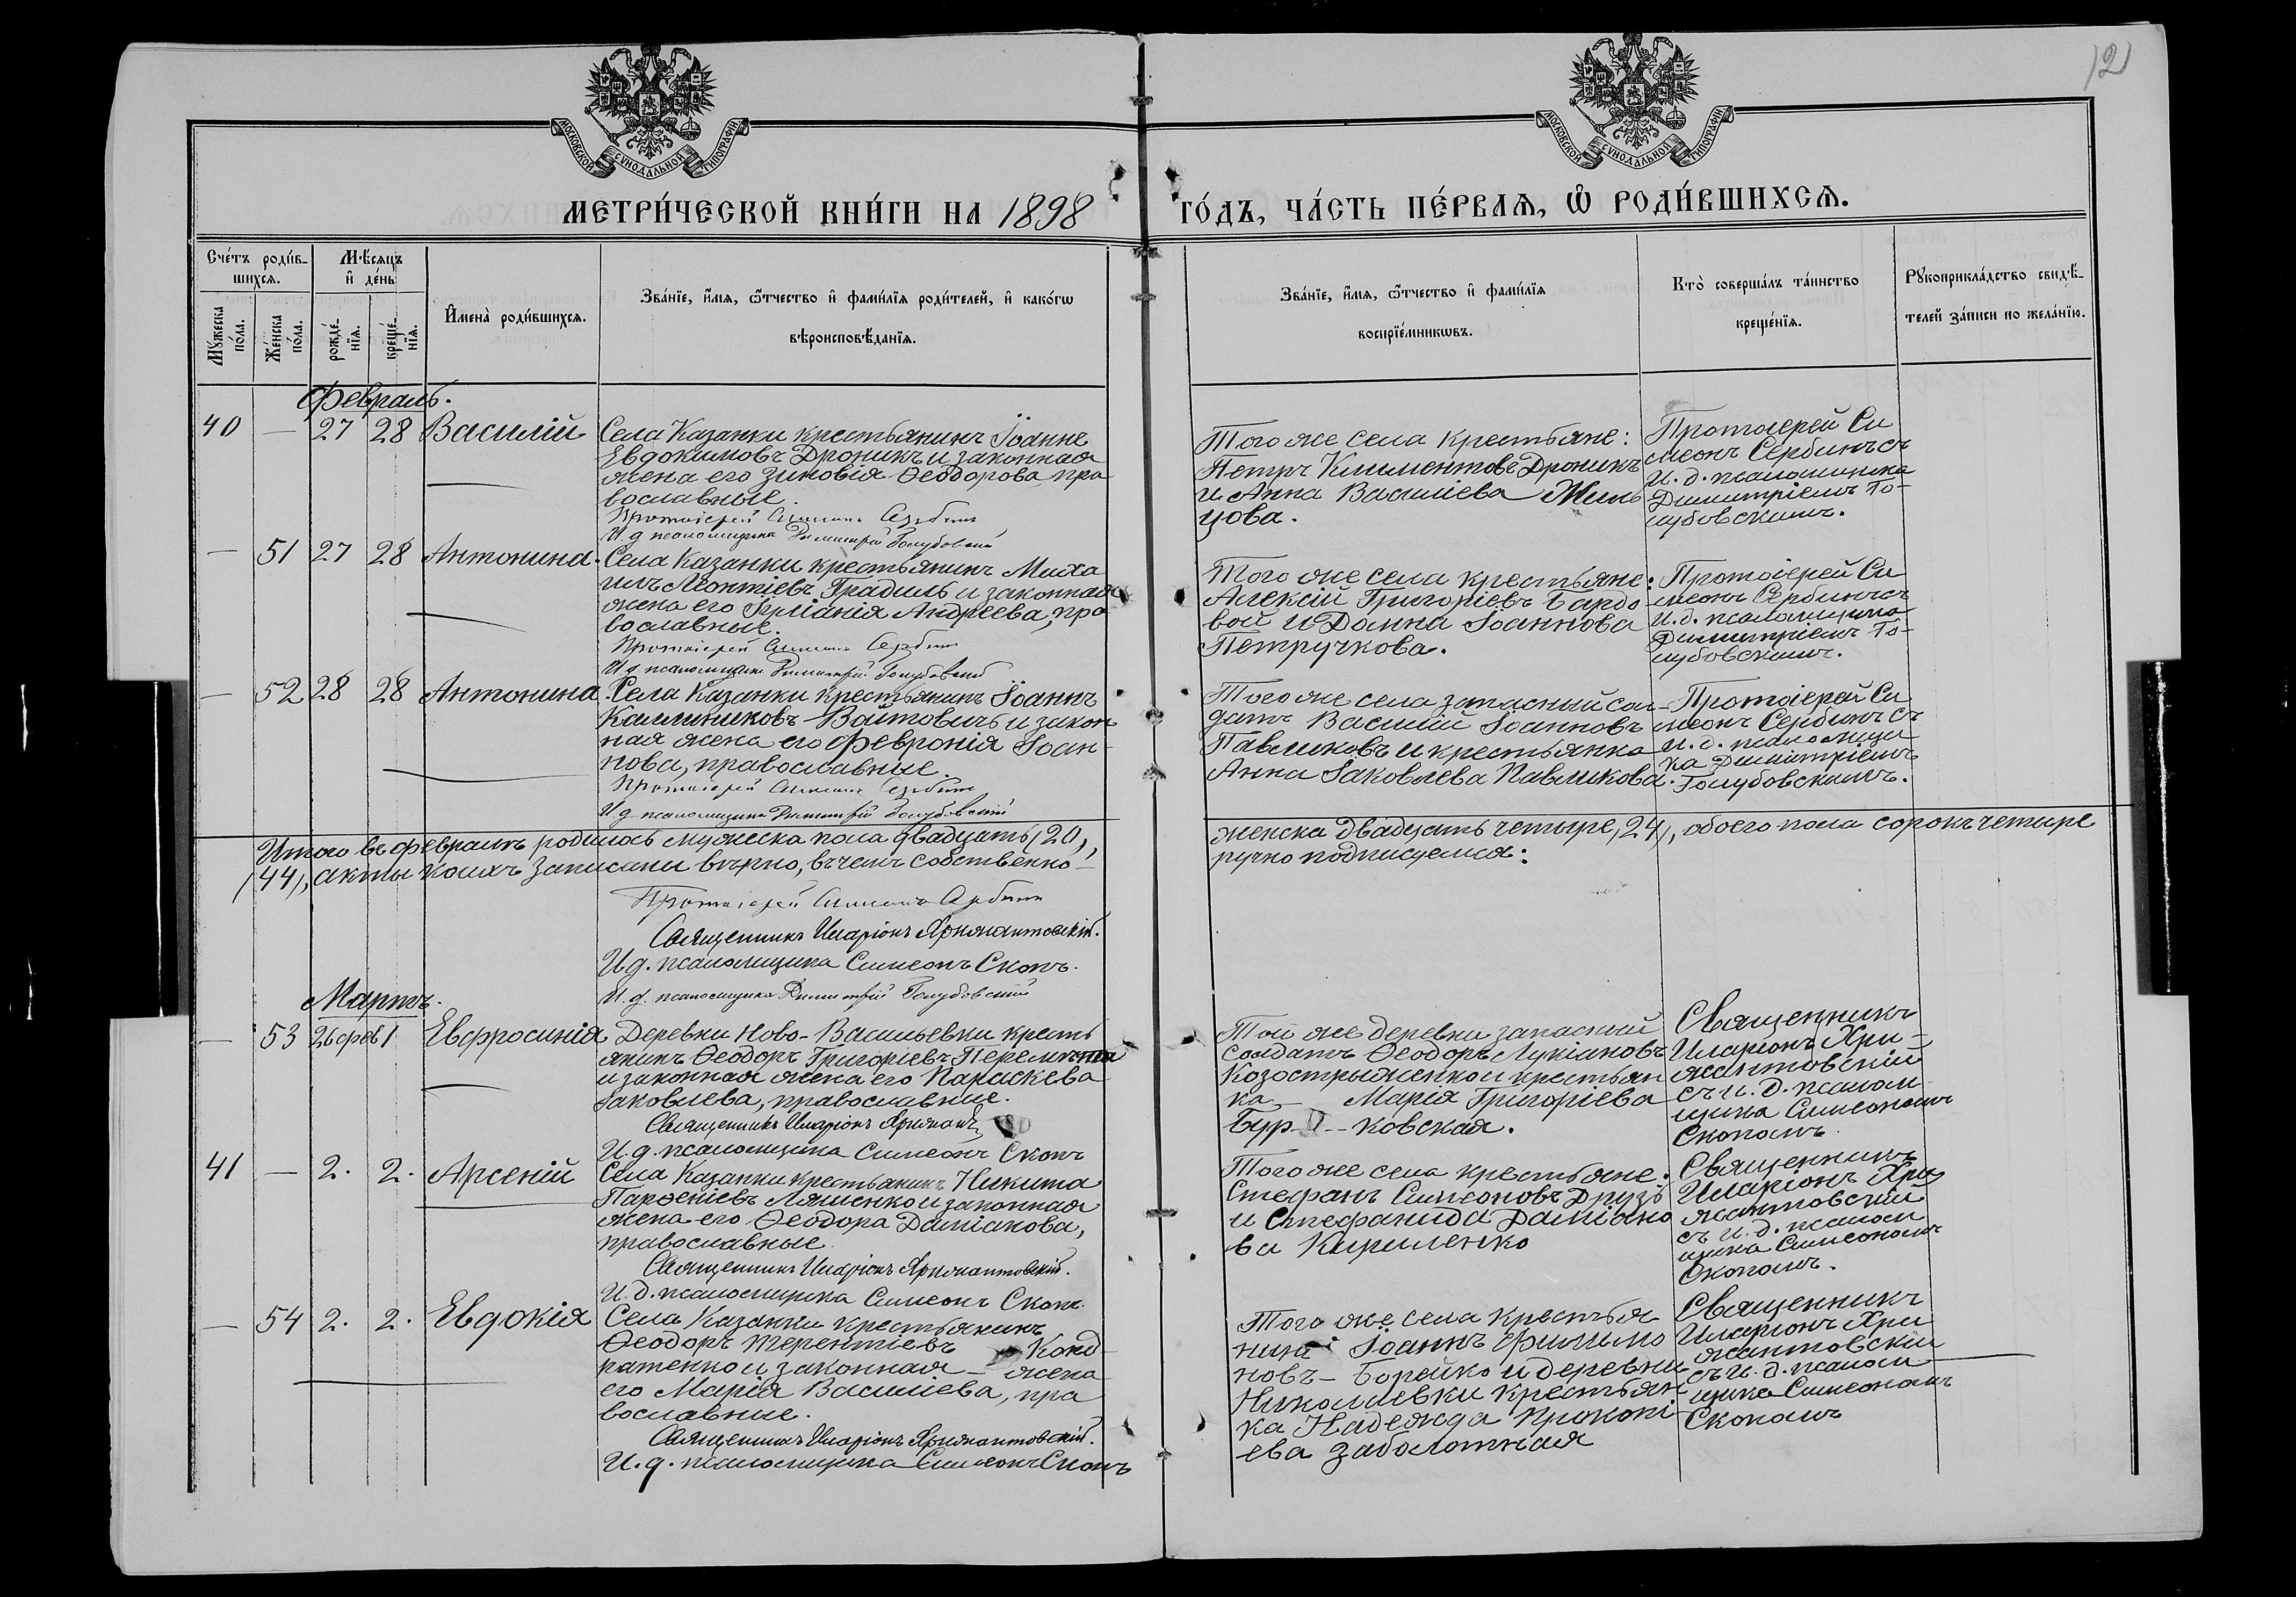 12
МОСКОВСКОЙ СУНОДАЛЬНОЙ ТИПОГРАФІИ.
МОСКОВСКОЙ СУНОДАЛЬНОЙ ТИПОГРАФІИ.
МЕТРИ́ЧЕСКОЙ КНИ́ГИ НА 1898 ГО́ДЪ, ЧА́СТЬ ПЕ́РВАѦ, Ѡ҆ РОДИ́ВШИХСѦ.
Сче́тъ роди́в-
шихсѧ.
Мꙋ́жеска
по́ла.
Же́нска
по́ла.
Мѣ́сѧцъ
и҆ де́нь
рожде́-
нїѧ.
креще́-
нїѧ.
И҆мена̀ роди́вшихсѧ.
Зва́нїе, и҆́мѧ, ѻ҆́тчество и҆ фами́лїѧ роди́телей, и҆ како́гѡ
вѣроисповѣ́данїѧ.
Зва́нїе, и҆́мѧ, ѻ҆́тчество и҆ фами́лїѧ
воспрїе́мникѡвъ.
Кто̀ соверша́лъ та́инство
креще́нїѧ.
Рꙋкоприкла́дство свидѣ́-
телей за́писи по жела́нїю.
Февраль.
40 — 27 28 Василій
Села Казанки крестьянинъ Іоаннъ
Евдокимовъ Дроникъ и законная
жена его Зиновія Ѳеодорова, пра
вославные.
Протоіерей Симеонъ Сербинъ
И. д. псаломщика Димитрій Голубовскій
Того же села крестьяне:
Петръ Климентовъ Дроникъ
и Анна Василіева Жиль
цова.
Протоіерей Си
меонъ Сербинъ съ
и. д. псаломщика
Димитріемъ Го-
лубовскимъ.
— 51 27 28 Антонина.
Села Казанки крестьянинъ Миха
илъ Леонтіевъ Градиль и законная
жена его Іуліанія Андреева, пра
вославные.
Протоіерей Симеонъ Сербинъ
И. д. псаломщика Димитрій Голубовскій
Того же села крестьяне:
Алексій Григоріевъ Бардо
вой и Домна Іоаннова
Петручкова.
Протоіерей Си
меонъ Сербинъ съ
и. д. псаломщика
Димитріемъ Го-
лубовскимъ.
— 52 28 28 Антонина.
Села Казанки крестьянинъ Іоаннъ
Каллиниковъ Войтовичъ и закон
ная жена его Февронія Іоан-
нова, православные.
Протоіерей Симеонъ Сербинъ
И. д. псаломщика Димитрій Голубовскій
Того же села запасный сол-
датъ Василій Іоанновъ
Павликовъ и крестьянка
Анна Іаковлева Павликова.
Протоіерей Си
меонъ Сербинъ съ
и. д. псаломщи
ка Димитріемъ
Голубовскимъ.
Итого въ февралѣ родилось мужеска пола двадцать /20/, женска двадцать четыре /24/, обоего пола сорокъ четыре
/44/, акты коихъ записаны вѣрно, въ чемъ собственно- ручно подписуемся:
Протоіерей Симеонъ Сербинъ
Священникъ Иларіонъ Хрижантовскій.
И. д. псаломщика Симеонъ Скопъ.
И. д. псаломщика Димитрій Голубовскій
Мартъ.
— 53 26 фев 1 Евфросинія
Деревни Ново-Васильевки кресть
янинъ Ѳеодоръ Григоріевъ
и законная жена его Параскева
Іаковлева, православные.
Священникъ Иларіонъ
И. д. псаломщика Симеонъ Скопъ
Той же деревни запасный
солдатъ Ѳеодоръ Лукіановъ
Козостриженко и крестьян
ка Марія Григоріева
Бур---ковская.
Священникъ
Иларіонъ Хри-
жантовскій
съ и. д. псалом
щика Симеономъ
Скопомъ.
41 — 2. 2. Арсеній
Села Казанки крестьянинъ Никита
Парѳеніевъ Ляшенко и законная
жена его Ѳеодора Даміанова,
православные.
Священникъ Иларіонъ Хрижантовскій.
И. д. псаломщика Симеонъ Скопъ.
Того же села крестьяне:
Стефанъ Симеоновъ Друзь
и Стефанида Даміано
ва Кириленко
Священникъ
Иларіонъ Хри
жантовскій
съ и. д. псалом
щика Симеономъ
Скопомъ.
— 54 2. 2. Евдокія
Села Казанки крестьянинъ
Ѳеодоръ Терентіевъ Конд
ратенко и законная – жена
его Марія Василіева, пра
вославные.
Священникъ Иларіонъ Хрижантовскій.
И. д. псаломщика Симеонъ Скопъ
Того же села крестья
нинъ Іоаннъ Филимо
новъ – Борейко и деревни
Николаевки крестьян
ка Надежда Прокопі
ева Заболотная
Священникъ
Иларіонъ Хри
жантовскій
съ и. д. псалом
щика Симеономъ
Скопомъ